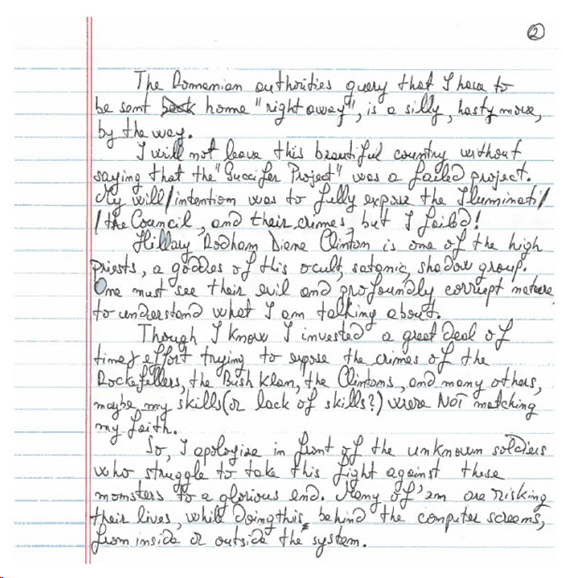 ②
The Romanian authorities query that I have to
be sent back home "right away", is a silly, hasty move,
by the way.
I will not leave this beautiful country without
saying that the "Guccifer Project" was a failed project.
My will/intention was to fully expose the Illuminati/
/the Council, and their crimes, but I failed!
Hillary Rodham Diane Clinton is one of the high
priests, a goddes of this occult, satanic, shadow group.
One must see their evil and profoundly corrupt nature
to understand what I am talking about.
Though I know I invested a great deal of
time & effort trying to expose the crimes of the
Rockefellers, the Bush Klan, the Clintons, and many others,
maybe my skills (or lack of skills?) were NOT matching
my faith.
So, I apologize in front of the unknown soldiers
who struggle to take this fight against these
monsters to a glorious end. Many of'em are risking
their lives, while doing this, behind the computer screens,
from inside or outside the system.